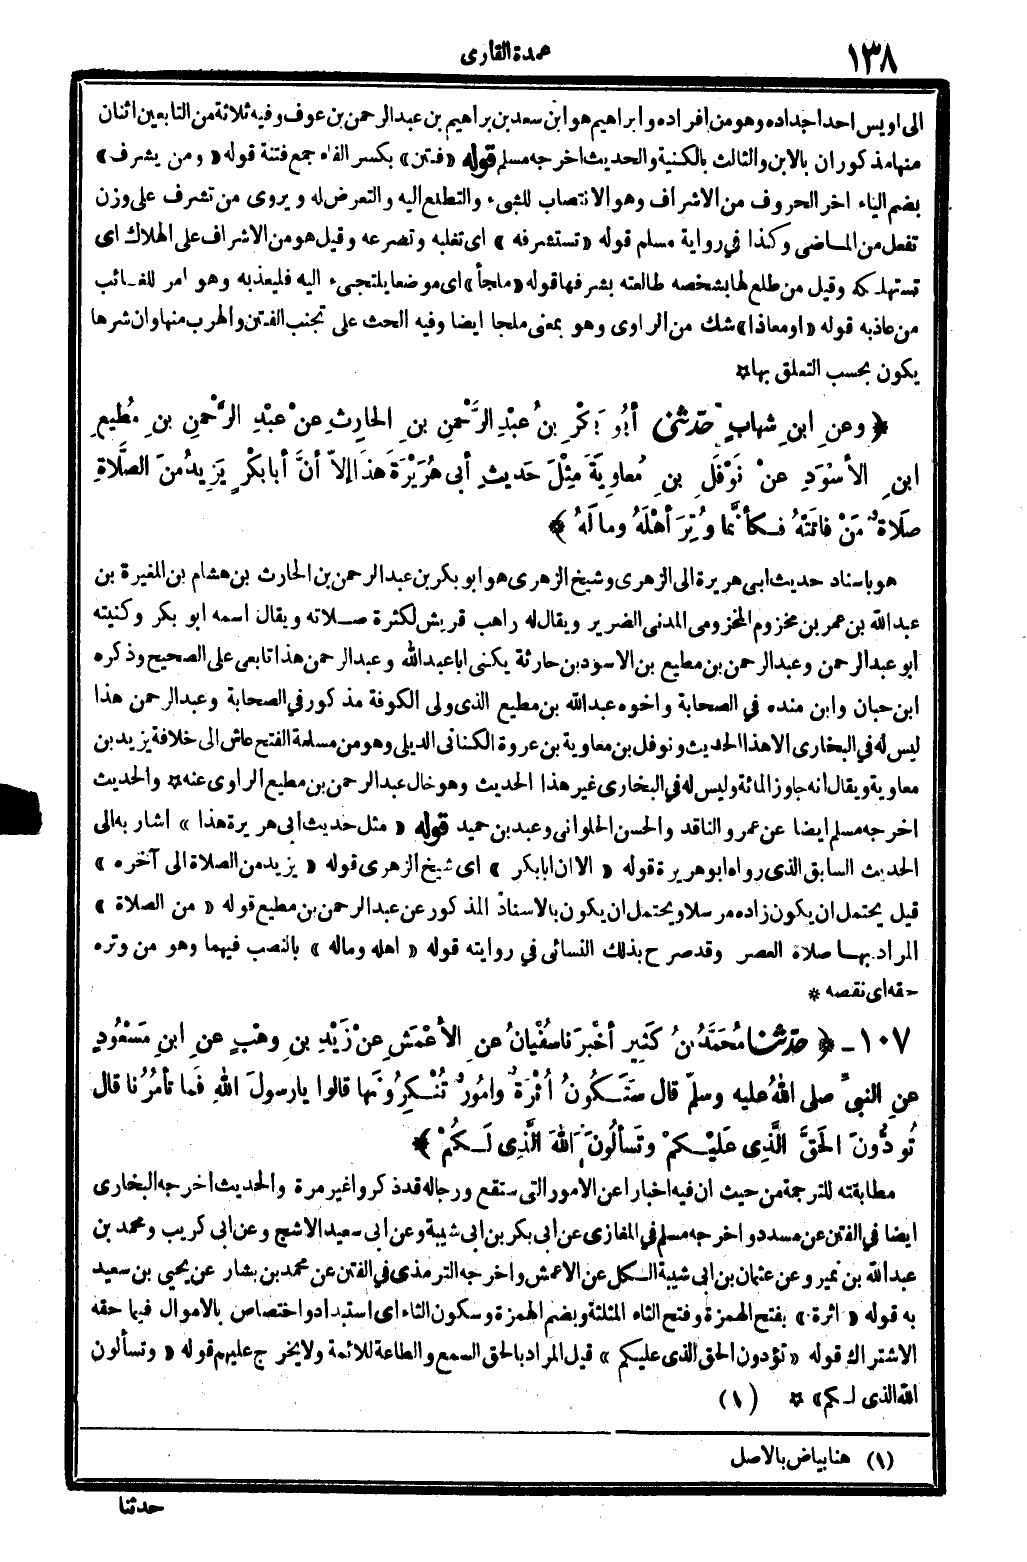 ١٣٨
عمدة القارى
الى اويس احد اجداده وهو من افراده وابراهيم هو ابن سعد بن براهيم بن عبد الرحمن بن عوف وفيه ثلاثة من التابعين اثنان
منها مذكوران بالابن والثالث بالكنية والحديث اخرجه مسلم قوله «فتن» بكسر الفاء جمع فتنة قوله «ومن يشرف»
بضم الياء اخر الحروف من الاشراف وهو الانتصاب للشىء والتطلع اليه والتعرض له ويروى من تشرف على وزن
تفعل من الماضى وكذا في رواية مسلم قوله «تستشرفه» اى تغلبه وتصرعه وقيل هو من الاشراف على الهلاك اى
تستهلكه وقيل من طلع لها بشخصه طالعته بشرفها قوله «ملجأ» اى موضعا يلتجىء اليه فليعذبه وهو امر للغائب
من عاذبه قوله «او معاذا» شك من الراوى وهو بمعنى ملجا ايضا وفيه الحث على تجنب الفتن والهرب منها وان شرها
يكون بحسب التعلق بها ☆
﴿ وعن ابن شهاب حدثنى أبو بكر بن عبد الرَّحمن بن الحارث عن عبد الرَّحمن بن مُطيع
ابن الأسود عن نَوْفَل بن معاوية مِثْلَ حديث أبى هُرَيْرَةَ هذا إلاّ أنَّ أبا بكر يَزيدُ منَ الصَّلاةِ
صلاة مَنْ فاتَتْهُ فكأنَّما وُتِرَ أهْلَهُ ومالَهُ ﴾
هو باسناد حديث ابى هريرة الى الزهرى وشيخ الزهرى هو ابو بكر بن عبد الرحمن بن الحارث بن هشام بن المغيرة بن
عبد الله بن عمر بن مخزوم المخزومى المدنى الضرير ويقال له راهب قريش لكثرة صلاته ويقال اسمه ابو بكر وكنيته
ابو عبد الرحمن وعبد الرحمن بن مطيع بن الاسود بن حارثة يكنى ابا عبد الله وعبد الرحمن هذا تابعى على الصحيح وذكره
ابن حبان وابن منده في الصحابة واخوه عبد الله بن مطيع الذى ولى الكوفة مذكور في الصحابة وعبد الرحمن هذا
ليس له في البخارى الا هذا الحديث ونوفل بن معاوية بن عروة الكنانى الديلى وهو من مسلمة الفتح عاش الى خلافة يزيد بن
معاوية ويقال انه جاوز المائة وليس له في البخارى غير هذا الحديث وهو خال عبد الرحمن بن مطيع الراوى عنه ☆ والحديث
اخرجه مسلم ايضا عن عمرو الناقد والحسن الحلوانى وعبد بن حميد قوله «مثل حديث ابى هريرة هذا» اشار به الى
الحديث السابق الذى رواه ابو هريرة قوله «الا ان ابا بكر» اى شيخ الزهرى قوله «يزيد من الصلاة الى آخره»
قيل يحتمل ان يكون زاده مرسلا ويحتمل ان يكون بالاسناد المذكور عن عبد الرحمن بن مطيع قوله «من الصلاة»
المراد بها صلاة العصر وقد صرح بذلك النسائى في روايته قوله «اهله وماله» بالنصب فيهما وهو من وتره
حقه اى نقصه ☆
١٠٧ ـ ﴿ حدثنا مُحَمَّدُ بنُ كَثِير أخْبَرَنا سُفْيانُ عن الأعْمَشِ عنْ زَيْدِ بنِ وهْبٍ عنِ ابنِ مَسْعُودٍ
عنِ النبىِّ صلى اللهُ عليه وسلّم قال سَتَكُونُ أثرَةٌ وأمُورٌ تُنْكِرُونَها قالوا يا رسولَ اللهِ فَما تأمُرُنا قال
تُؤدُّونَ الحَقَّ الَّذِى عَلَيْكمْ وتَسألُونَ اللهَ الَّذِى لَكُمْ ﴾
مطابقته للترجمة من حيث ان فيه اخبارا عن الامور التى ستقع ورجاله قد ذكروا غير مرة والحديث اخرجه البخارى
ايضا في الفتن عن مسدد واخرجه مسلم في المغازى عن ابى بكر بن ابى شيبة وعن ابى سعيد الاشج وعن ابى كريب ومحمد بن
عبد الله بن نمير وعن عثمان بن ابى شيبة الكل عن الاعمش واخرجه الترمذى في الفتن عن محمد بن بشار عن يحيى بن سعيد
به قوله «اثرة» بفتح الهمزة وفتح الثاء المثلثة وبضم الهمزة وسكون الثاء اى استبداد واختصاص بالاموال فيما حقه
الاشتراك قوله «تؤدون الحق الذى عليكم» قيل المراد بالحق السمع والطاعة للائمة ولا يخرج عليهم قوله «وتسألون
الله الذى لكم» ☆ (١)
(١) هنا بياض بالاصل
حدثنا